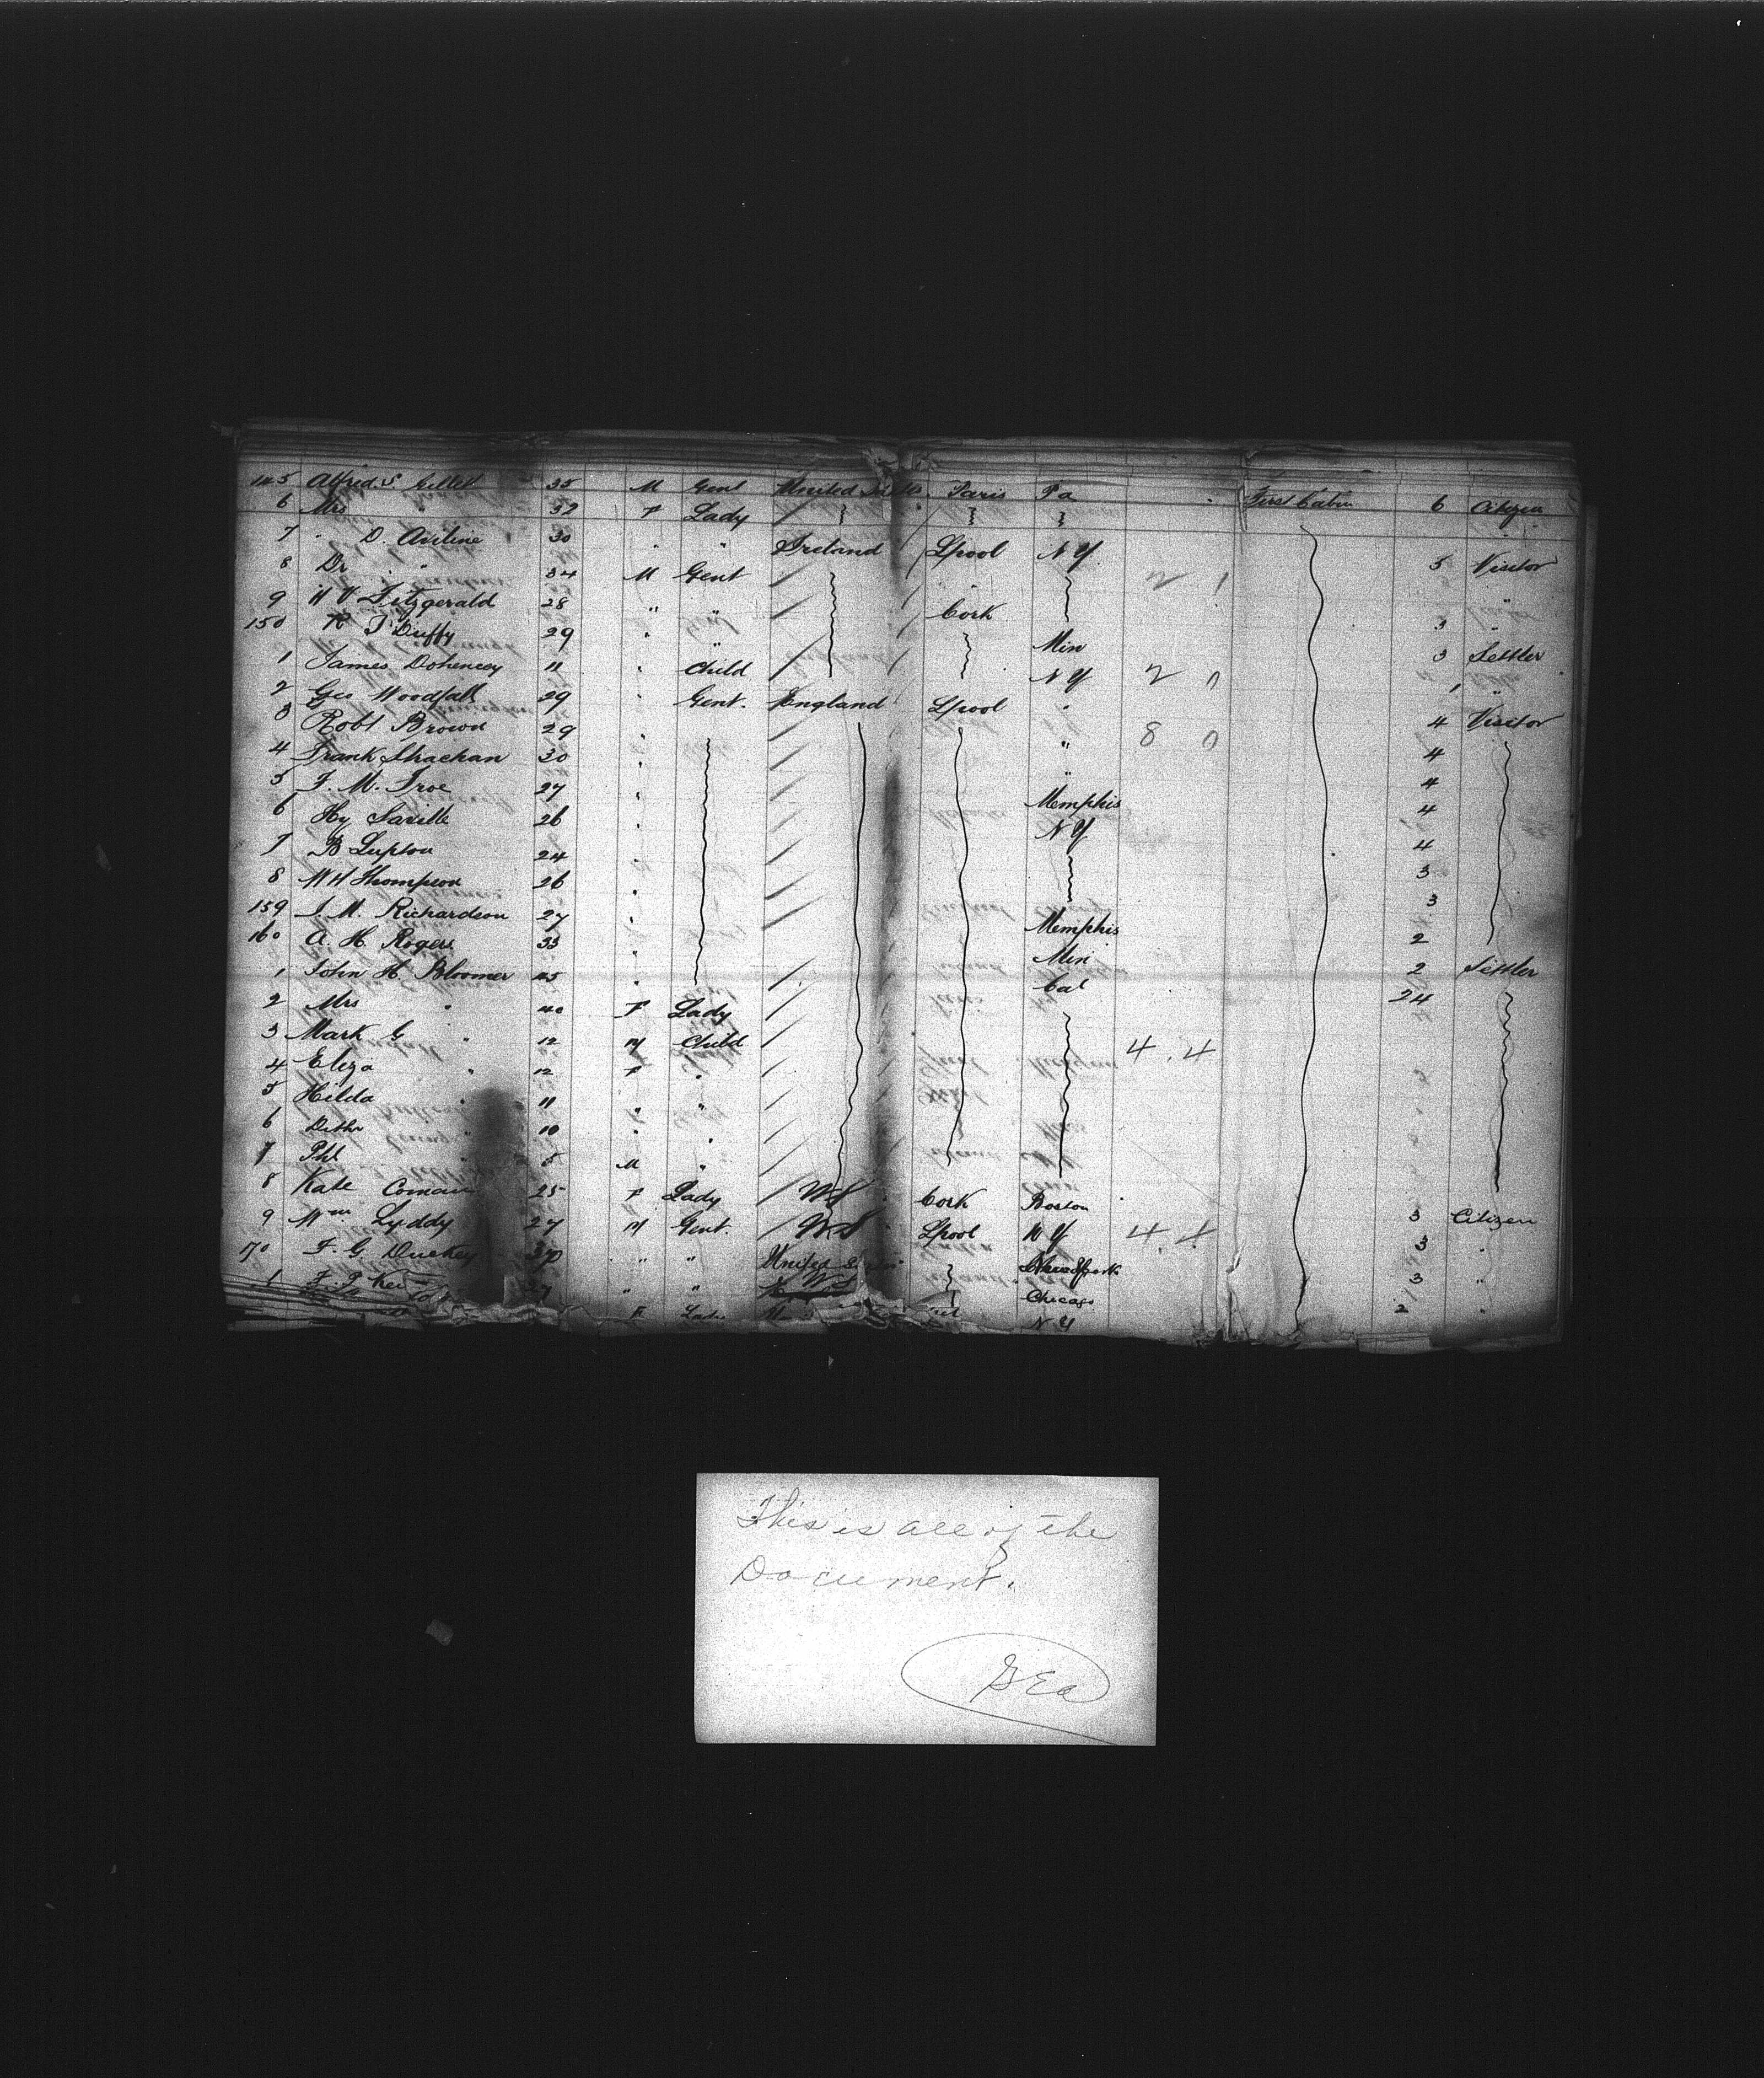 145 Alfred S. Gillett 35 M Gent United States Paris Pa First Cabin 6 Citizen
6 Mrs " 32 F Lady
7 " D. Airline 30 " " Ireland Lpool N Y 5 Visitor
8 Dr " " 34 M Gent 2 1 "
9 H V Fitzgerald 28 " " Cork 3 "
150 R J Duffy 29 " " Min 3 Settler
1 James Dohencey 11 " Child N Y 2 0 1 "
2 Geo Woodfall 29 Gent. England Lpool " 4 Visitor
3 Robt Brown 29 " " 8 0 4
4 Frank Shachan 30 " " 4
5 F. M. Troe 27 " Memphis 4
6 Hy Saville 26 " N Y 4
7 B Lupton 24 " 3
8 W H Thompson 26 " 3
159 J. M. Richardson 27 " Memphis 2
160 A. H. Rogers 33 " Min 2 Settler
1 John H Bloomer 45 " Cal 24
2 Mrs " 40 F Lady
3 Mark G " 12 M Child 4.4
4 Eliza " 12 F "
5 Hilda " 11 " "
6 " 10 " "
7 Phl " 5 M "
8 Kate Coman 25 F Lady U S Cork Boston 3 Citizen
9 Wm Lyddy 27 M Gent. U S Lpool N Y 4.4 3 "
170 F. G. Duckey 30 " " United S New York 3 "
1 F. P. 27 " " U S Chicago 2 "
F Lady N Y
This is all of the
Document.
GEa